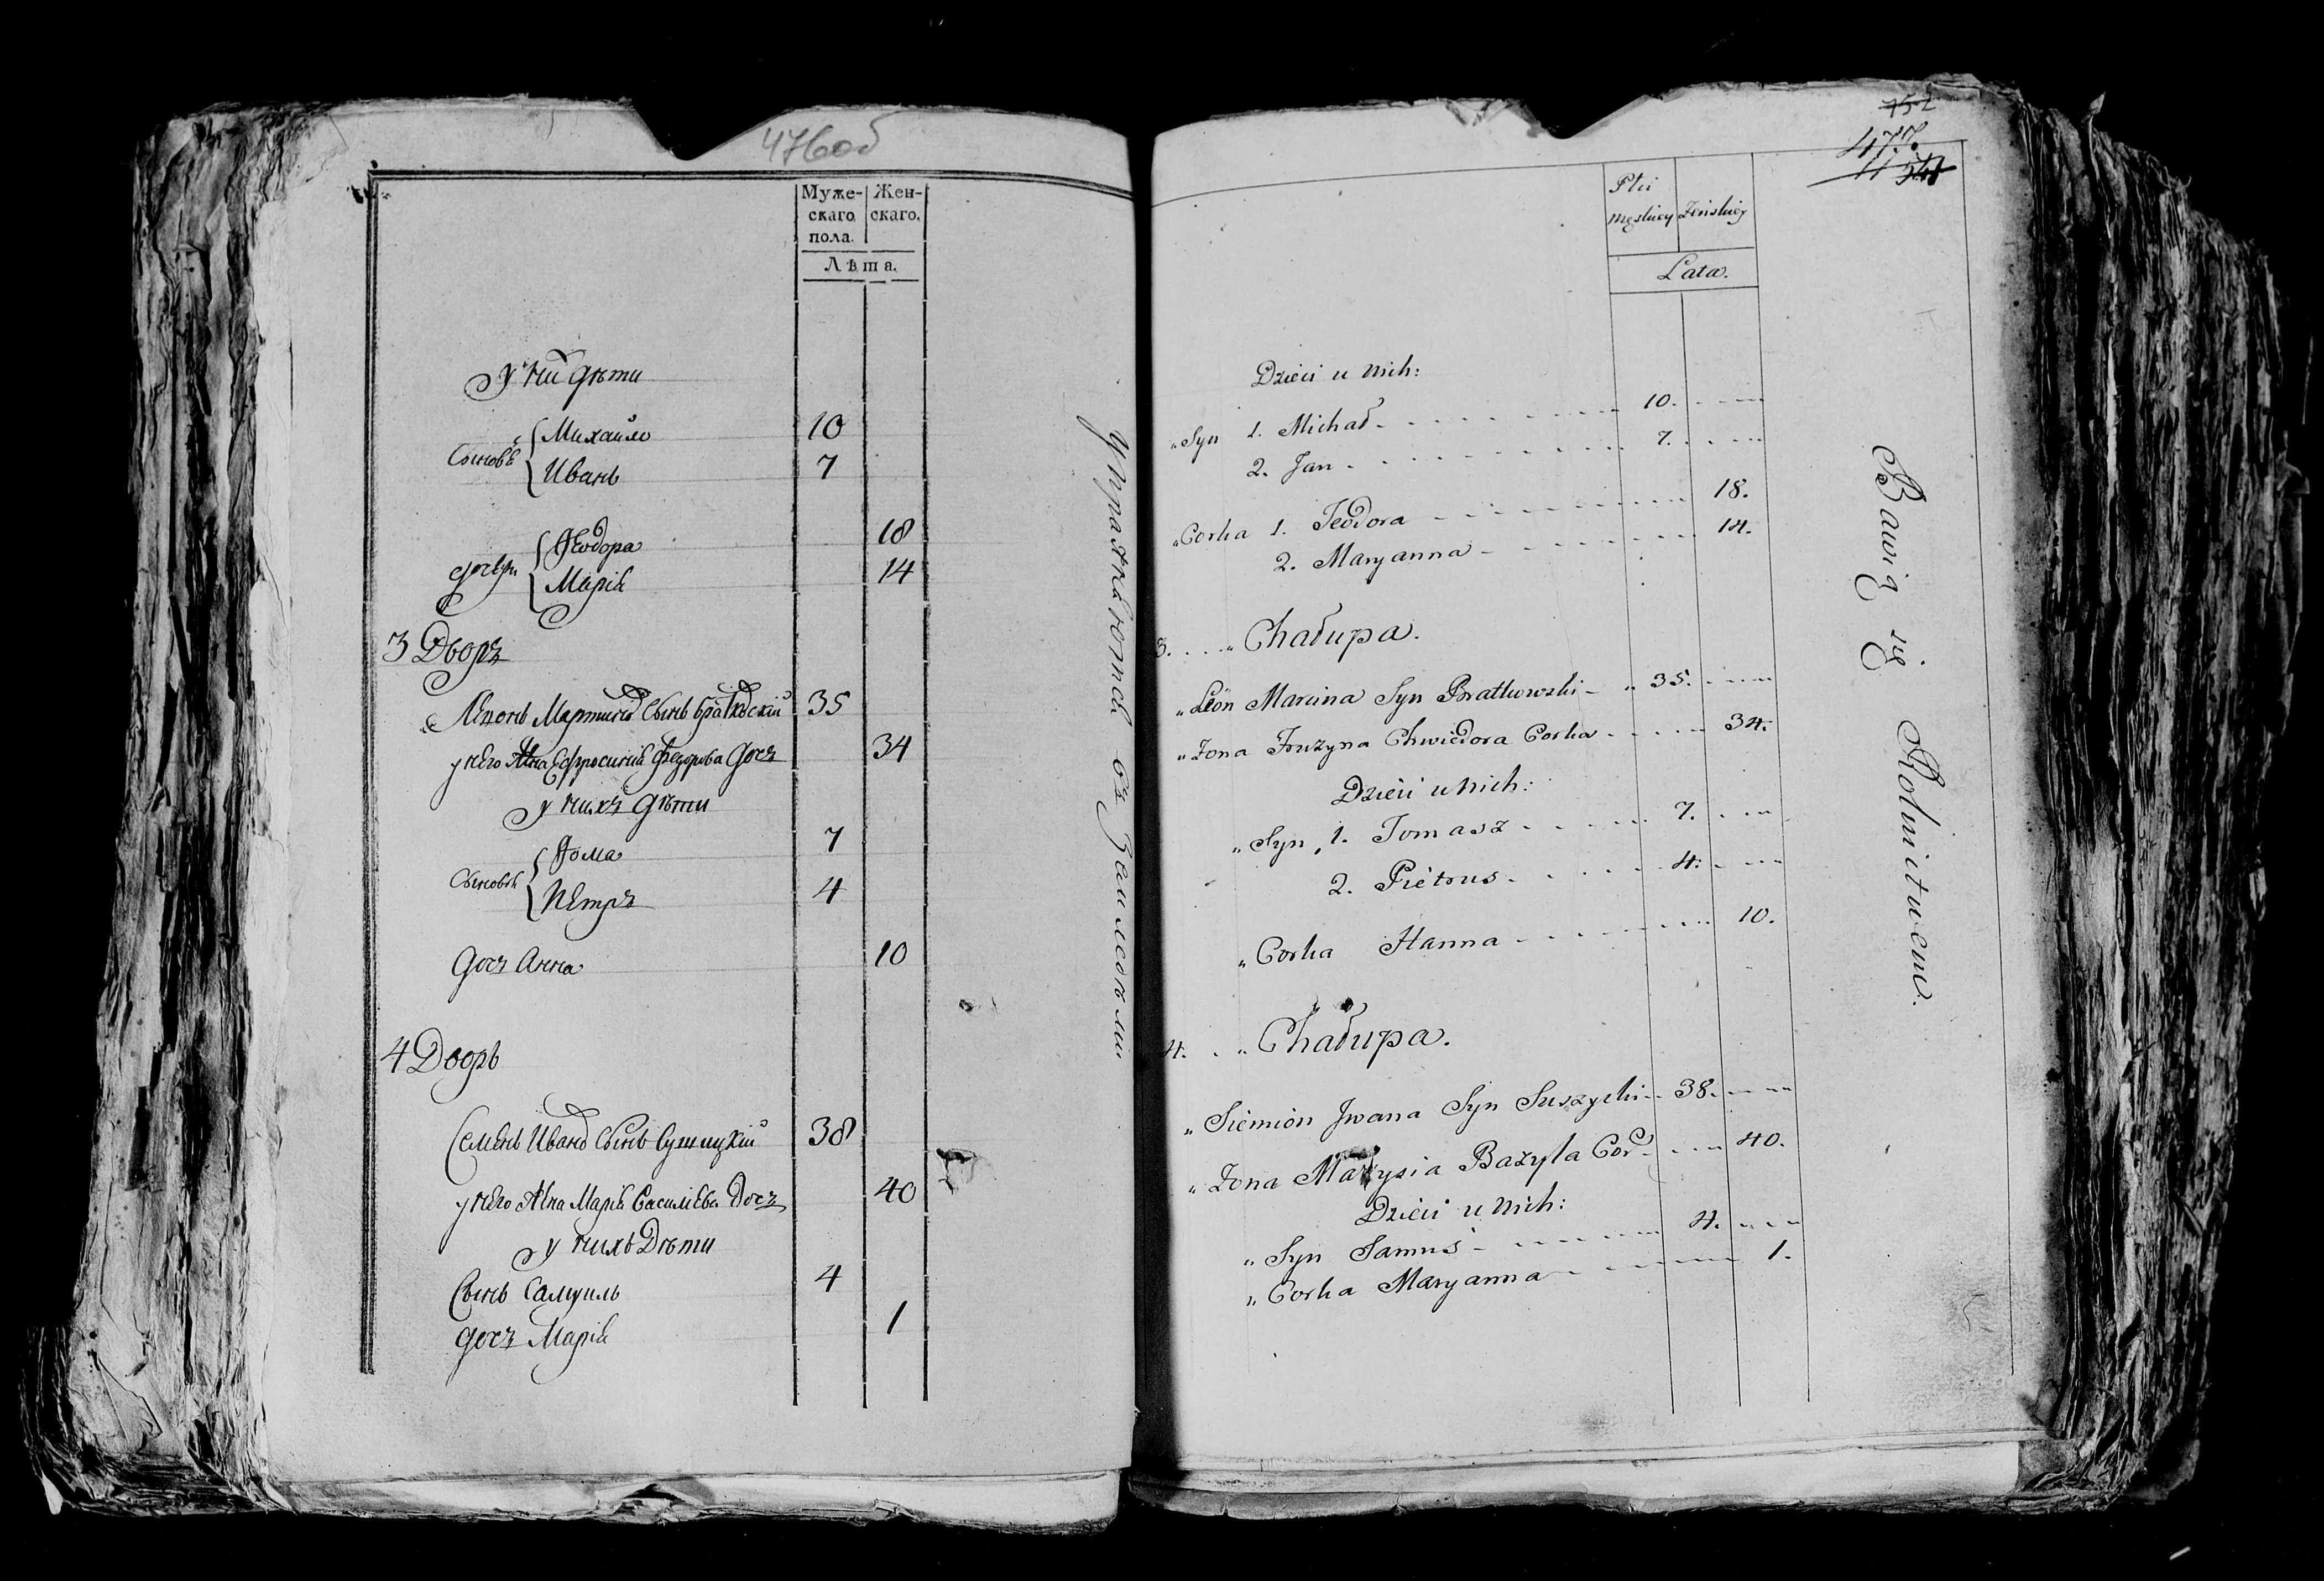 476об
Муже- Жен-
скаго скаго.
пола.
Лѣта.
У ни дѣти
Сыновѣ Михайло 10
Иванъ 7
Ѳеодора 18
Марія 14
3 Дворъ
Леонъ Мартина Сынъ Братковскій 35
у него Жена Ефросинія Федорова Дочь 34
у нихъ Дѣти
Сыновѣ Ѳома 7
Петръ 4
Дочь Анна 10
4 Дворъ
Семенъ Ивана Сынъ Сушицкій 38
у него Жена Марія Василіева Дочь 40
у нихъ Дѣти
Сынъ Самуиль 4
дочь Марія 1
Упражняются въ
752
477.
Płci
męskiey Żeńskiey
Lata.
Dzieci u nich:
„Syn 1. Michał 10.
2. Jan 7.
„Corka 1. Teodora 18.
2. Maryanna 14.
3. „Chałupa.
„Leon Marcina Syn Bratkowski 35.
„Żona Fruzyna Chwiedora Corka 34.
Dzieci u nich:
„Syn, 1. Tomasz 7.
2. Piétrus 4.
„Corka Hanna 10.
4. „Chałupa.
„Siemion Jwana Syn Suszycki 38.
„Żona Marysia Bazyla Cor 40.
Dzieci u nich:
„Syn Samuś 4.
„Corka Maryanna 1.
Bawią się Rolnictwem.